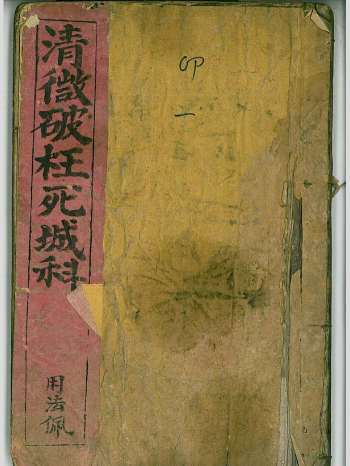 清微破枉死城科
用法佩
卬
一